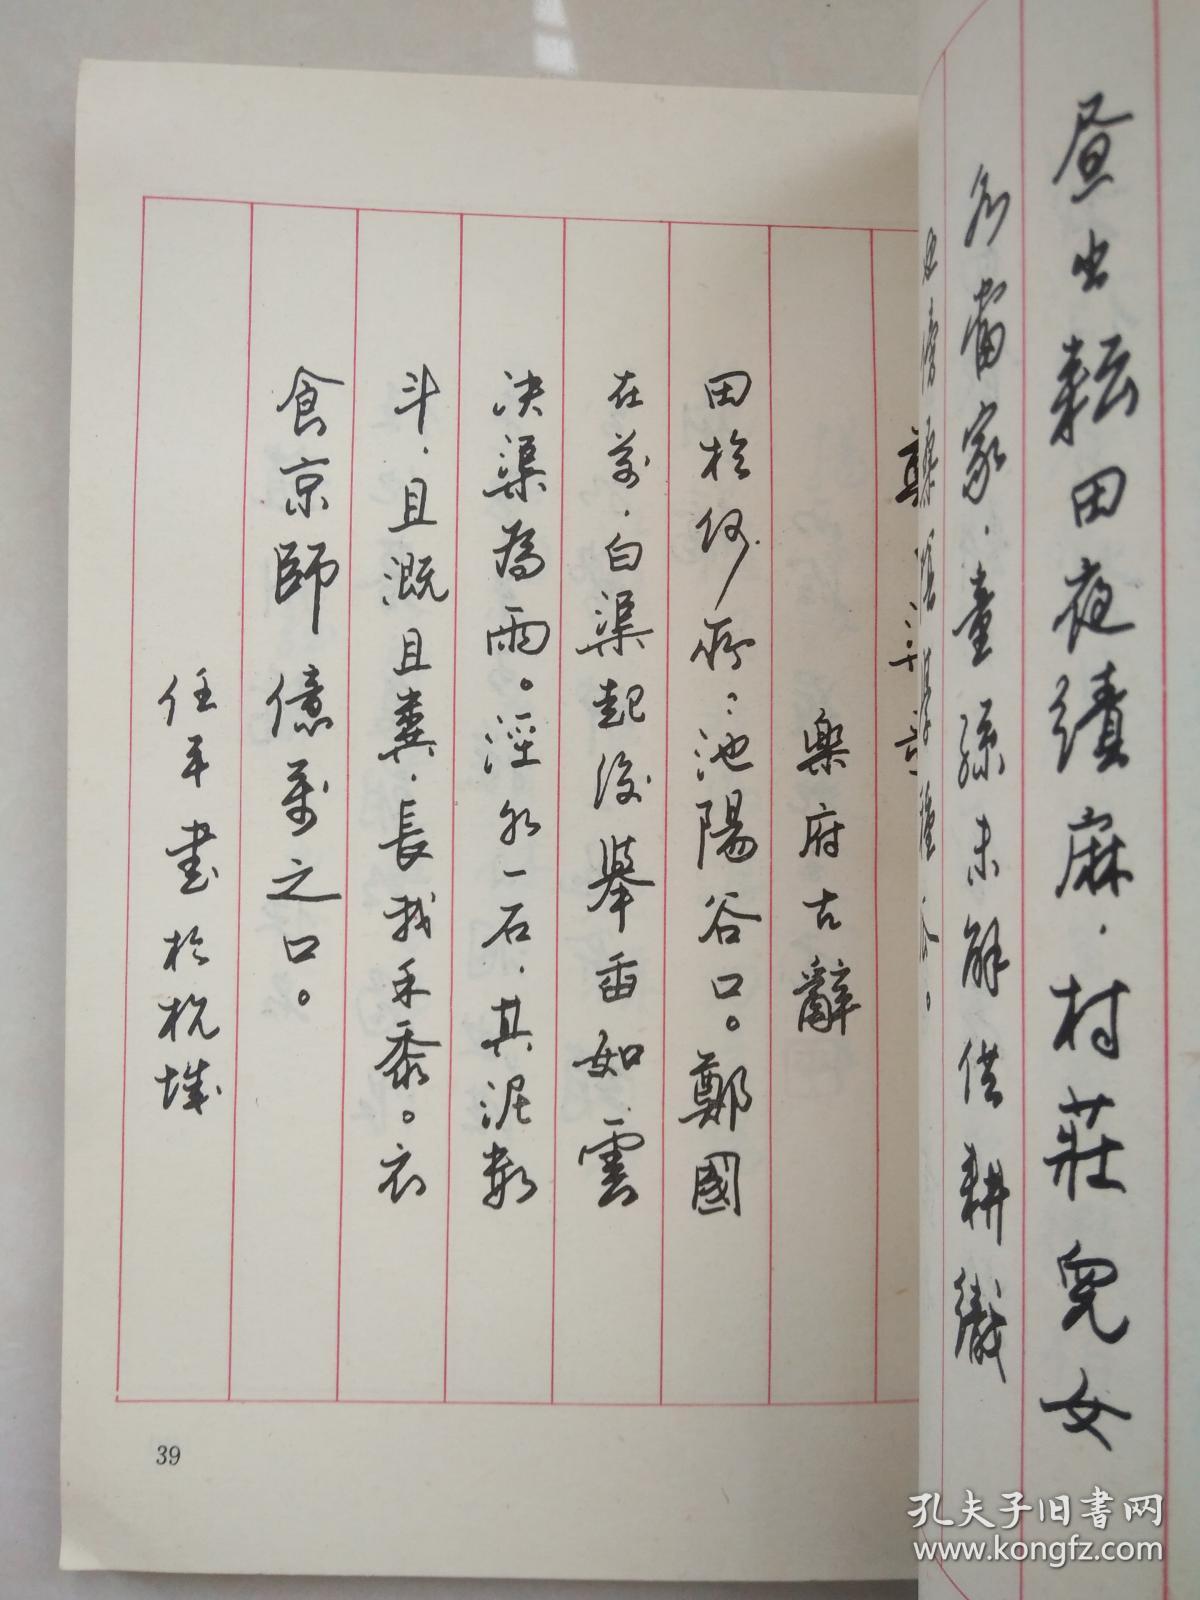 昼出耘田夜績麻．村莊兒女
各當家．童孫未解供耕織
也傍桑陰學種瓜。
樂府古辭
田於何所：池陽谷口。鄭國
在前．白渠起後舉臿如雲
決渠為雨。涇水一石．其泥數
斗．且溉且糞．長我禾黍。衣
食京師億萬之口。
任平書於杭城
39
孔夫子旧书网
www.kongfz.com